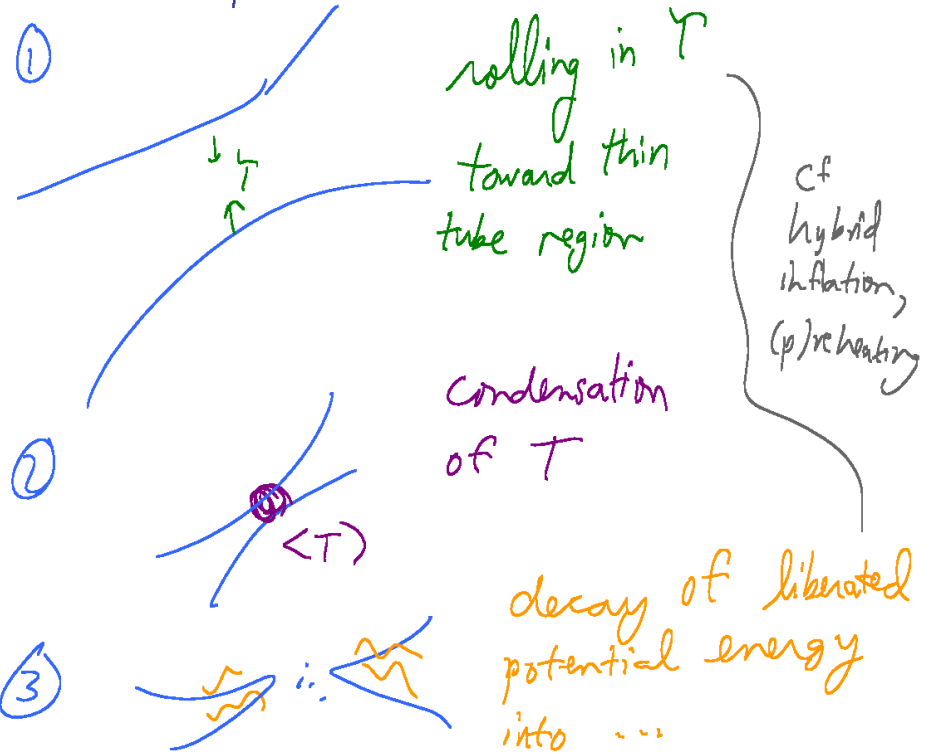 ①
rolling in T
toward thin
tube region
T
cf
hybrid
inflation,
(p)reheating
②
condensation
of T
<T>
③
decay of liberated
potential energy
into ...